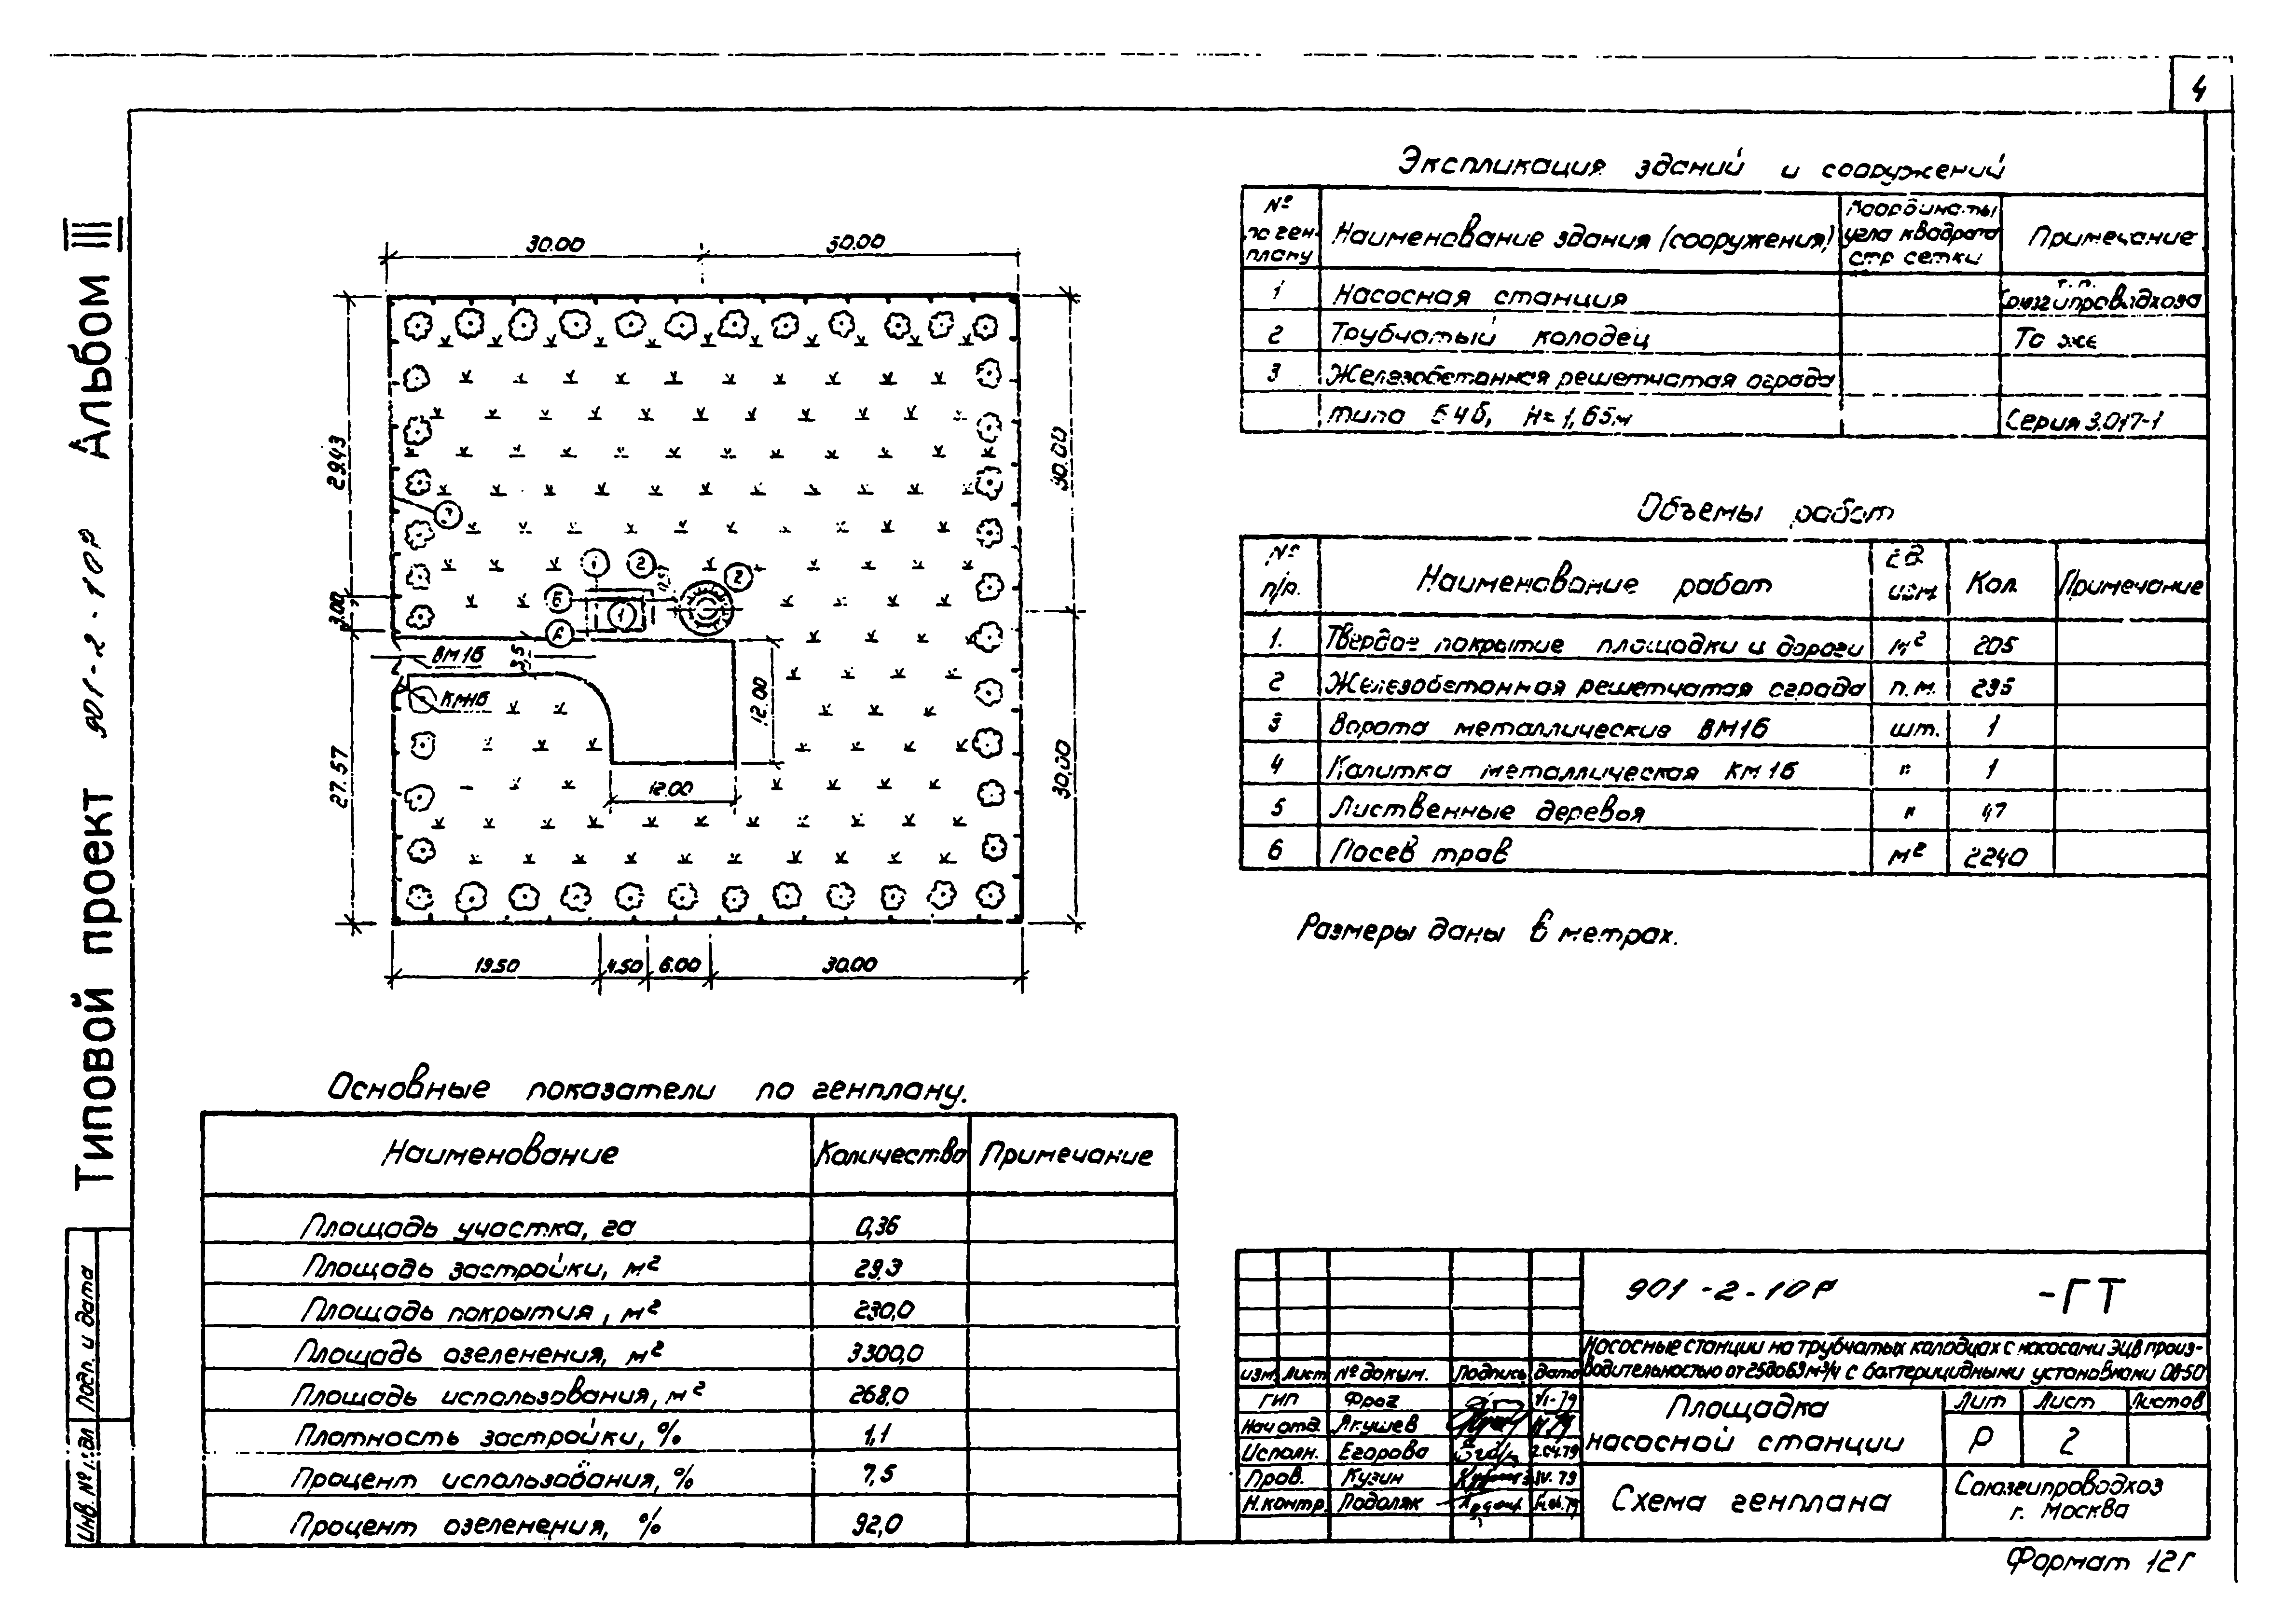 4
Типовой проект 901-2-10Р Альбом III
Подп. и дата
30.00 30.00
29.43
3.00
27.57
30.00
30.00
3
1 2
2
Б
1
А
ВМ1б
3.5
КМ1б
12.00
12.00
19.50 4.50 6.00 30.00
Экспликация зданий и сооружений
№ по ген-плану Наименование здания (сооружения) Координаты угла квадрата стр сетки Примечание
1 Насосная станция т.п. Союзгипроводхоза
2 Трубчатый колодец То же
3 Железобетонная решетчатая ограда
типа Б4б, H=1,65м Серия 3.017-1
Объемы работ
№ п/п. Наименование работ ед изм Кол. Примечание
1. Твердое покрытие площадки и дороги м² 205
2 Железобетонная решетчатая ограда п.м. 235
3 Ворота металлические ВМ1б шт. 1
4 Калитка металлическая КМ1б " 1
5 Лиственные деревья " 47
6 Посев трав м² 2240
Размеры даны в метрах.
Основные показатели по генплану.
Наименование Количество Примечание
Площадь участка, га 0,36
Площадь застройки, м² 29.3
Площадь покрытия, м² 230,0
Площадь озеленения, м² 3300,0
Площадь использования, м² 268,0
Плотность застройки, % 1,1
Процент использования, % 7,5
Процент озеленения, % 92,0
901-2-10Р -ГТ
Насосные станции на трубчатых колодцах с насосами ЭЦВ произ-
водительностью от 25 до 63 м³/ч с бактерицидными установками ОВ-50
изм. Лист № докум. Подпись Дата
ГИП Фрог VI-79
Нач отд. Якушев
Исполн. Егорова 2.04.79
Пров. Кузин IV.79
Н.контр. Подоляк
Площадка
насосной станции
Лит Лист Листов
Р 2
Схема генплана
Союзгипроводхоз
г. Москва
Формат 12Г